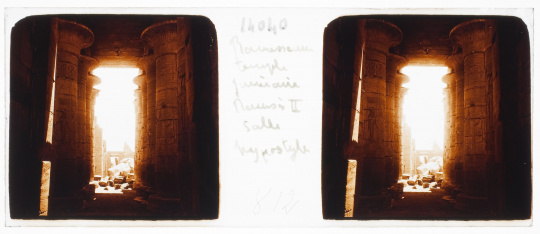 14040
Ramesseum
temple
funéraire
Ramsès II
Salle
hypostyle